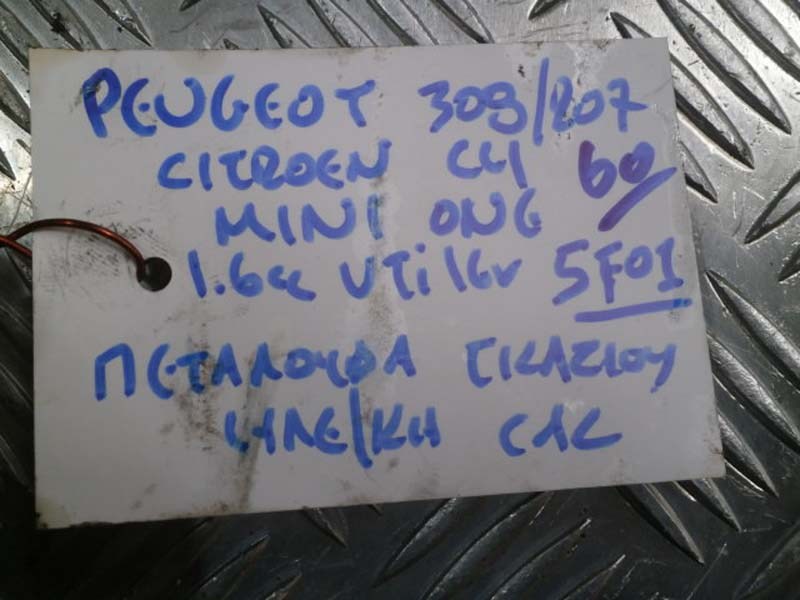 PEUGEOT 308/207
CITROEN C4 60
MINI ONE
1.6cc VTi 16v 5F01
ΠΕΤΑΛΟΥΔΑ ΓΚΑΖΙΟΥ
ΗΛΕ/ΚΗ